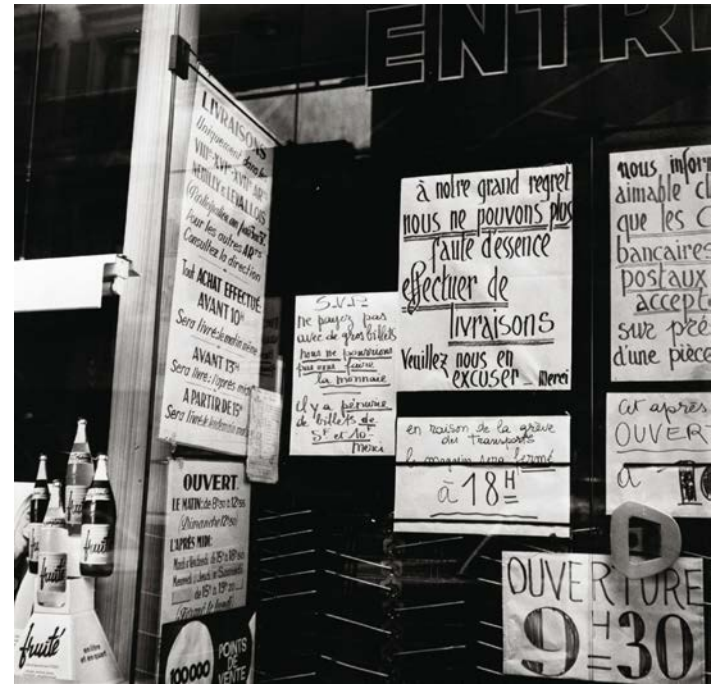 ENTR
LIVRAISONS
Uniquement dans les
VIIIe-XVIe-XVIIe ARts
NEUILLY et LEVALLOIS
Pour les autres ARrts
Consultez la direction
Tout ACHAT EFFECTUÉ
AVANT 10H
Sera livré: le matin même
AVANT 13H
Sera livré: l'après midi
A PARTIR DE 15H
Sera livré: le lendemain matin
OUVERT
LE MATIN: de 8H30 à 12H55
Dimanche 12H50
L'APRÈS MIDI:
de 15H à 19H20
100000
POINTS
DE
VENTE
fruité
fruité
fruité
fruité
en litre
et en quart
S.V.P.
ne payez pas
avec de gros billets
nous ne pourrions
pas vous faire
la monnaie
il y a pénurie
de billets de
5F et 10F
Merci
à notre grand regret
nous ne pouvons plus
faute d'essence
effectuer de
livraisons
Veuillez nous en
excuser _ merci
en raison de la grève
des transports
le magasin sera fermé
à 18H
nous inform
aimable cl
que les C
bancaires
postaux
accept
sur pré
d'une pièce
Cet après
OUVERT
à 1
OUVERTURE
9H=30